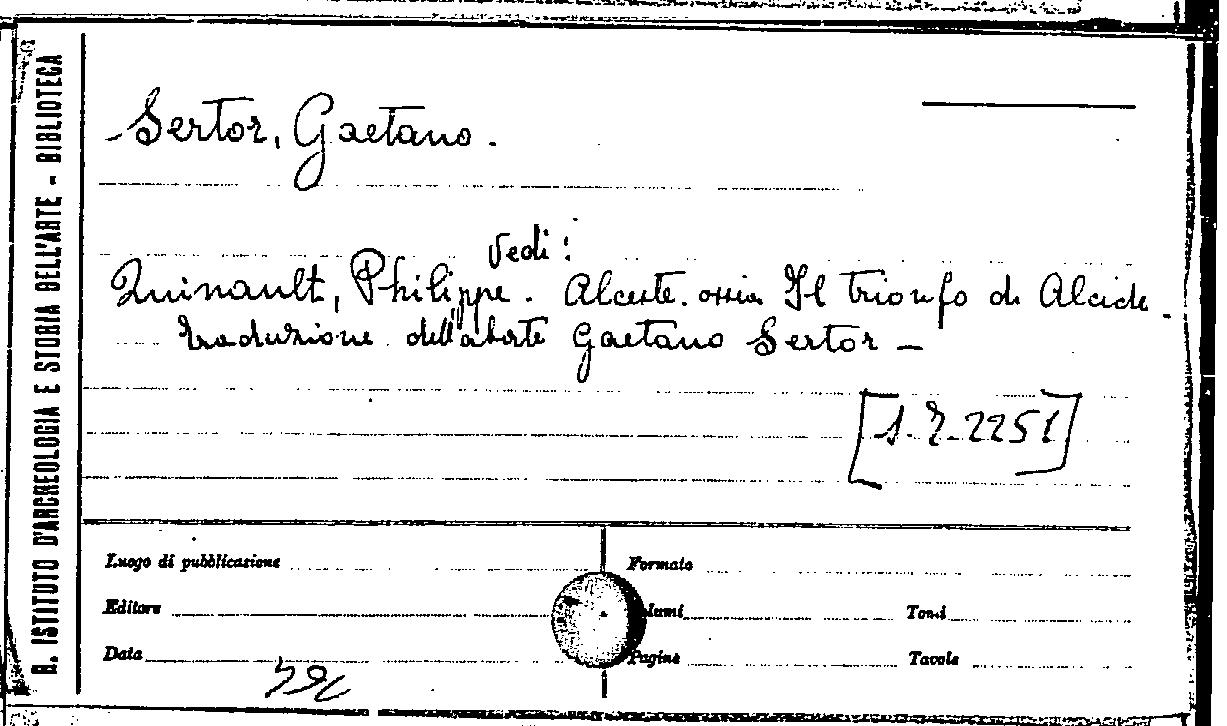 R. ISTITUTO D'ARCHEOLOGIA E STORIA DELL'ARTE - BIBLIOTECA
Sertor, Gaetano.
Vedi:
Quinault, Philippe. Alceste. ossia Il trionfo di Alcide.
traduzione dell'abate Gaetano Sertor -
Luogo di pubblicazione
Formato
Editore
Tomi
Data
Pagine
Tavole